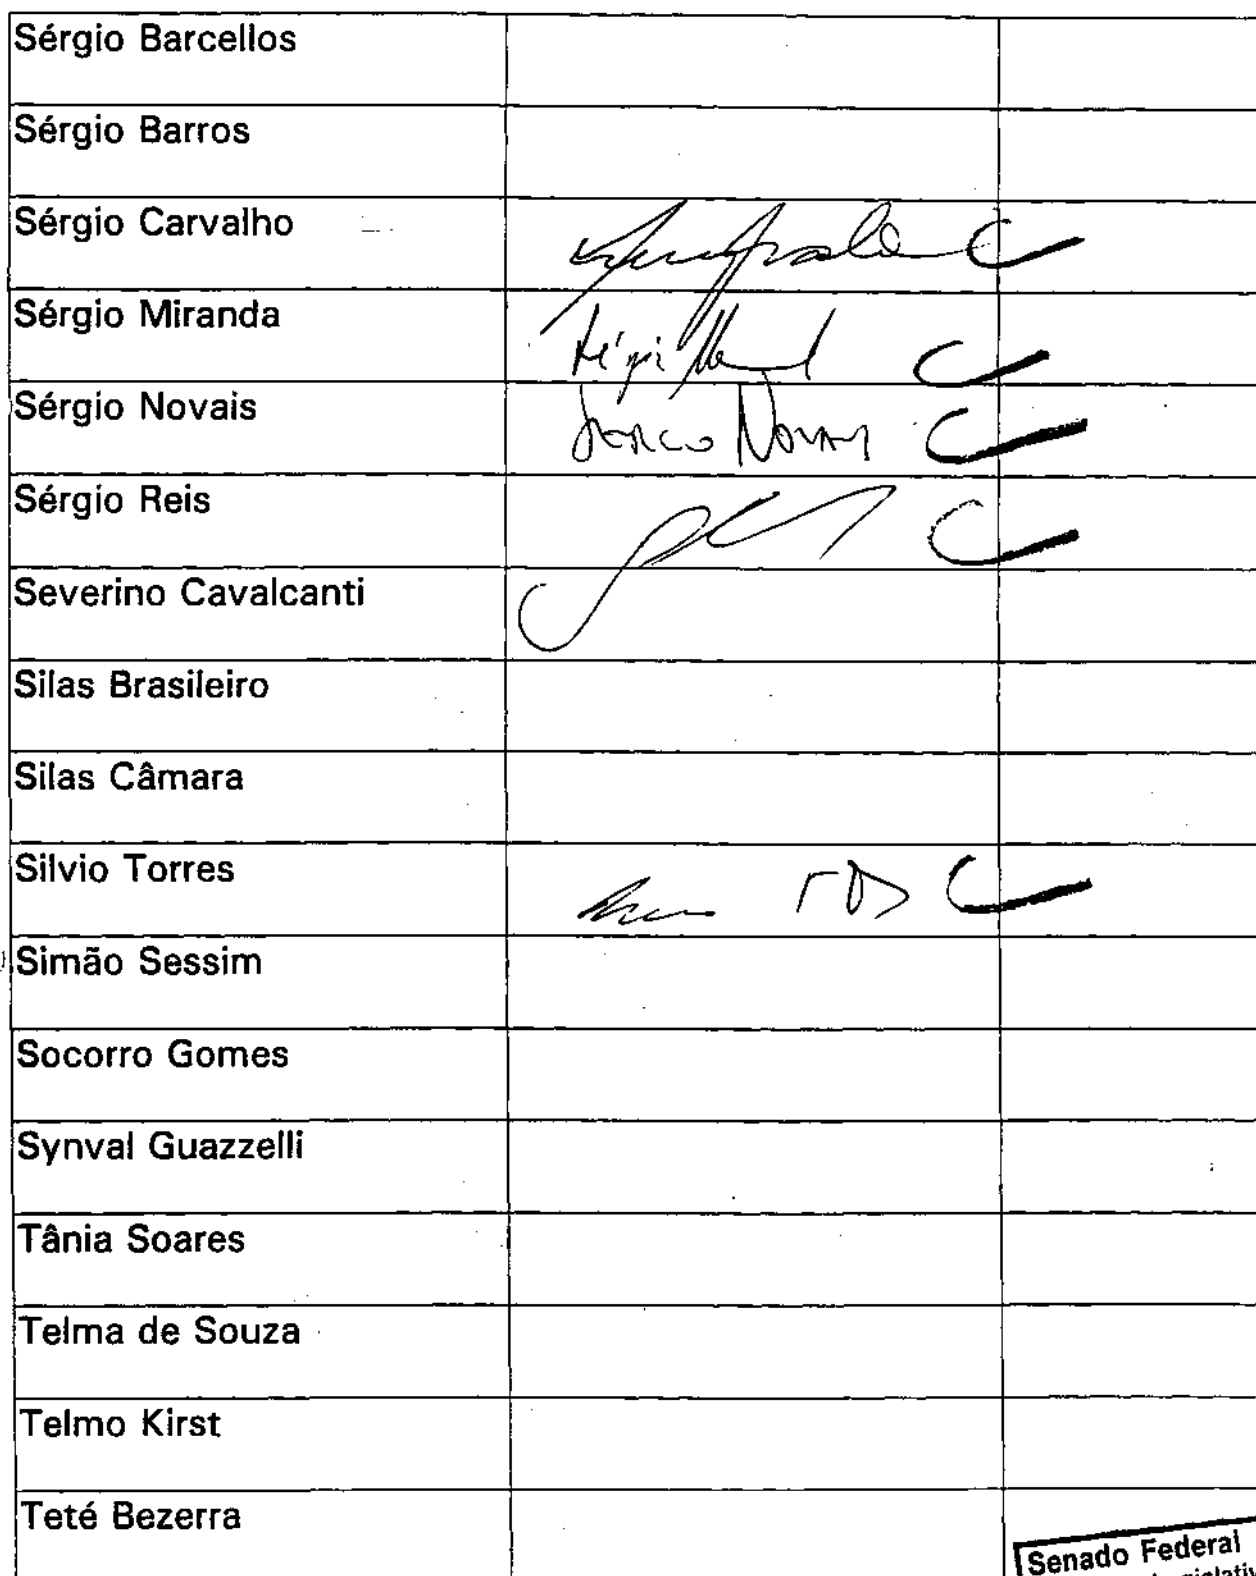 Sérgio Barcellos
Sérgio Barros
Sérgio Carvalho
Sérgio Miranda
Sérgio Novais
Sérgio Reis
Severino Cavalcanti
Silas Brasileiro
Silas Câmara
Silvio Torres
Simão Sessim
Socorro Gomes
Synval Guazzelli
Tânia Soares
Telma de Souza
Telmo Kirst
Teté Bezerra
Senado Federal